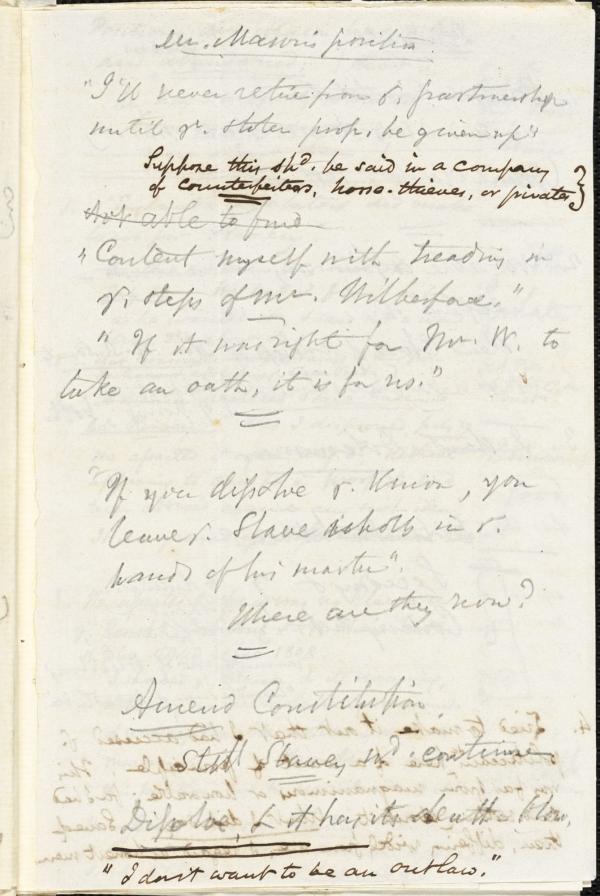 Mr. Mason's position
"I'll never retire from ye. partnership
until ye. stolen prop. be given up"
Suppose this shd. be said in a company
of counterfeiters, horse-thieves, or pirates }
Not able to find
"Content myself with treading in
ye. steps of Mr. Wilberforce."
"If it was right for Mr. W. to
take an oath, it is for us."
"If you dissolve ye. Union, you
leave ye. Slave wholly in ye.
hands of his master".
Where are they now?
Amend Constitution
Still Slavery shd. continue
Dissolve, & it has its death blow.
"I don't want to be an outlaw."